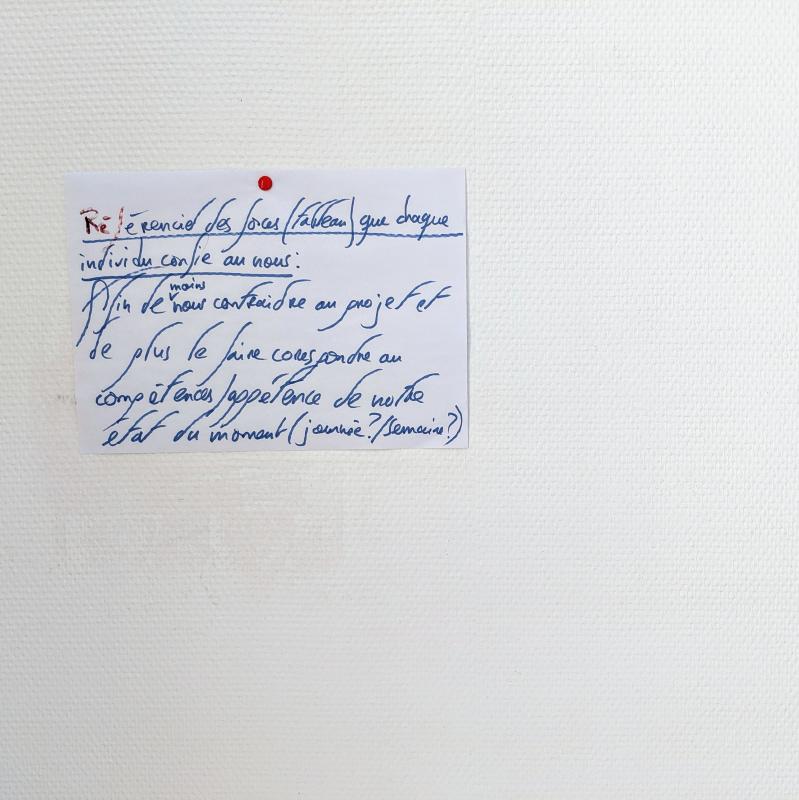 Référenciel des forces (tableau) que chaque
individu confie au nous :
Afin de moins nous contraindre au projet et
de plus le faire correspondre au
compétences/appétence de notre
état du moment (journée?/semaine?)